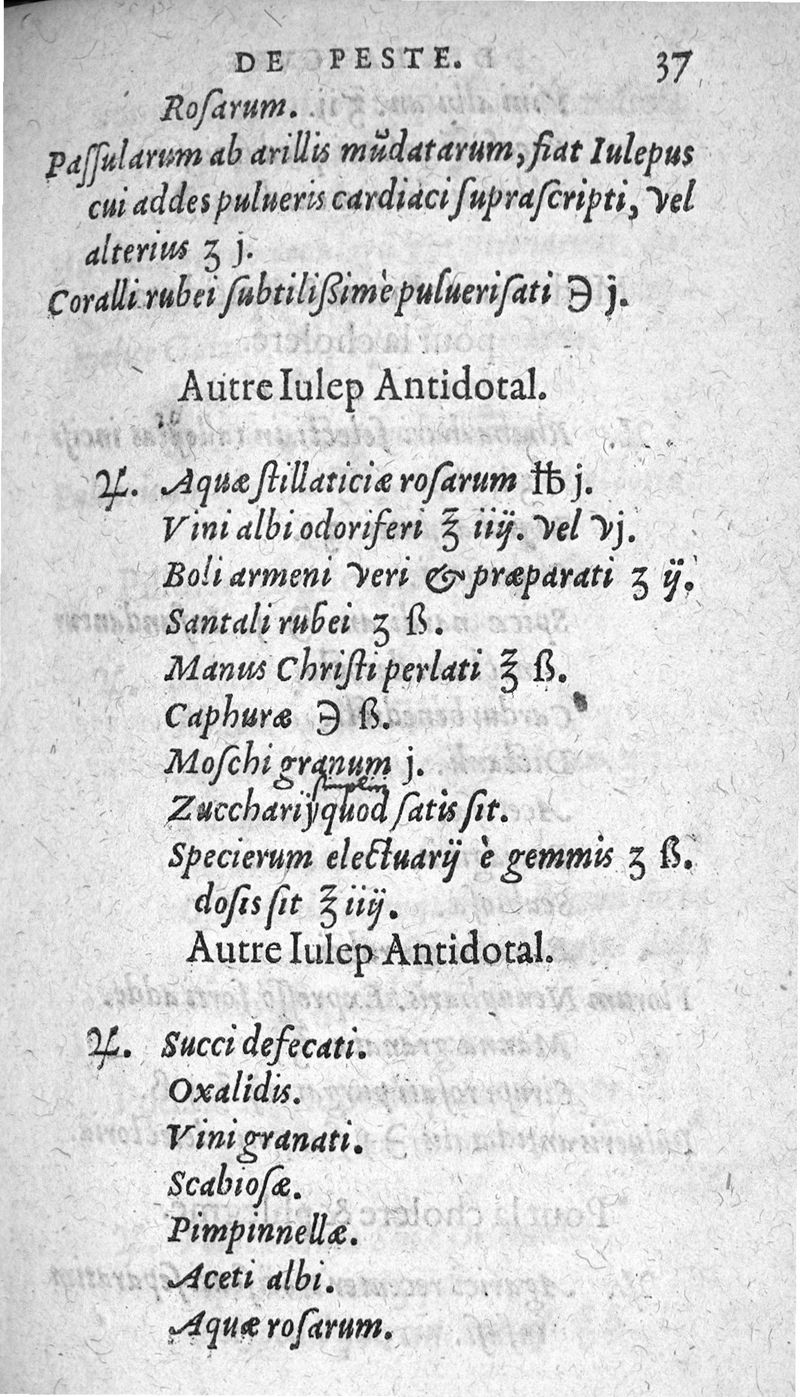 DE PESTE. 37
Roſarum.
Paſſularum ab arillis mũdatarum, fiat Iulepus
cui addes pulueris cardiaci ſupraſcripti, vel
alterius ʒ j.
Coralli rubei ſubtilißimè pulueriſati ℈ j.
Autre Iulep Antidotal.
♃. Aquæ ſtillaticiæ roſarum ℔ j.
Vini albi odoriferi ℥ iiij. vel vj.
Boli armeni veri & præparati ʒ ij.
Santali rubei ʒ ß.
Manus Chriſti perlati ℥ ß.
Caphuræ ℈ ß.
Moſchi granum j.
Zucchari quod ſatis ſit.
Specierum electuarij è gemmis ʒ ß.
doſis ſit ℥ iiij.
Autre Iulep Antidotal.
♃. Succi defecati.
Oxalidis.
Vini granati.
Scabioſæ.
Pimpinnellæ.
Aceti albi.
Aquæ roſarum.